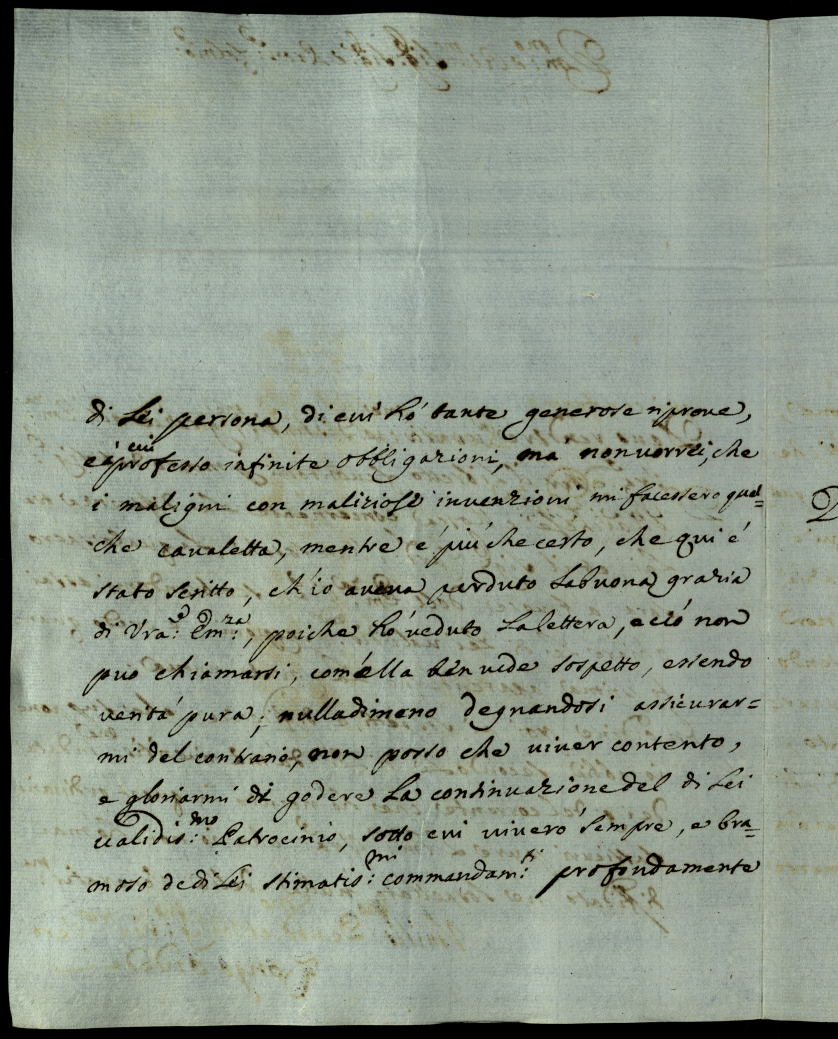 di Lei persona, di cui hó tante generose riprove,
e á cui professo infinite obbligazioni, ma non vorrei, che
i maligni con maliziose invenzioni mi facessero qual=
che cavaletta, mentre é piú che certo, che qui é
stato scritto, ch'io aveva perduto la buona grazia
di Vra: Emza:, poiche hó veduto la lettera, e ció non
puo chiamarsi, com'ella ben vede sospetto, essendo
veritá pura; nulladimeno degnandosi assicurar=
mi del contrario, non posso che viver contento,
e gloriarmi di godere la continuazione del di Lei
validis:mo Patrocinio, sotto cui viveró sempre, e bra=
moso de di Lei stimatis:mi commandam:ti profondamente